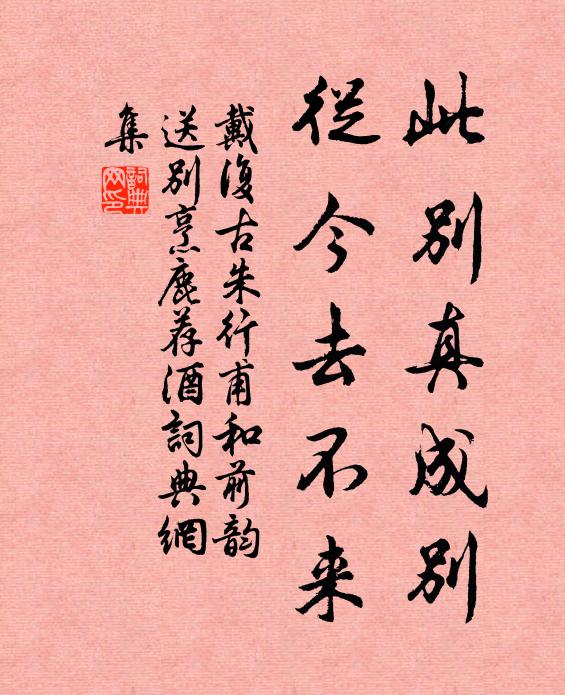 此别真成别
從今去不来
戴復古朱行甫和前韵
送别烹鹿荐酒詞典網
集
詞典
网印